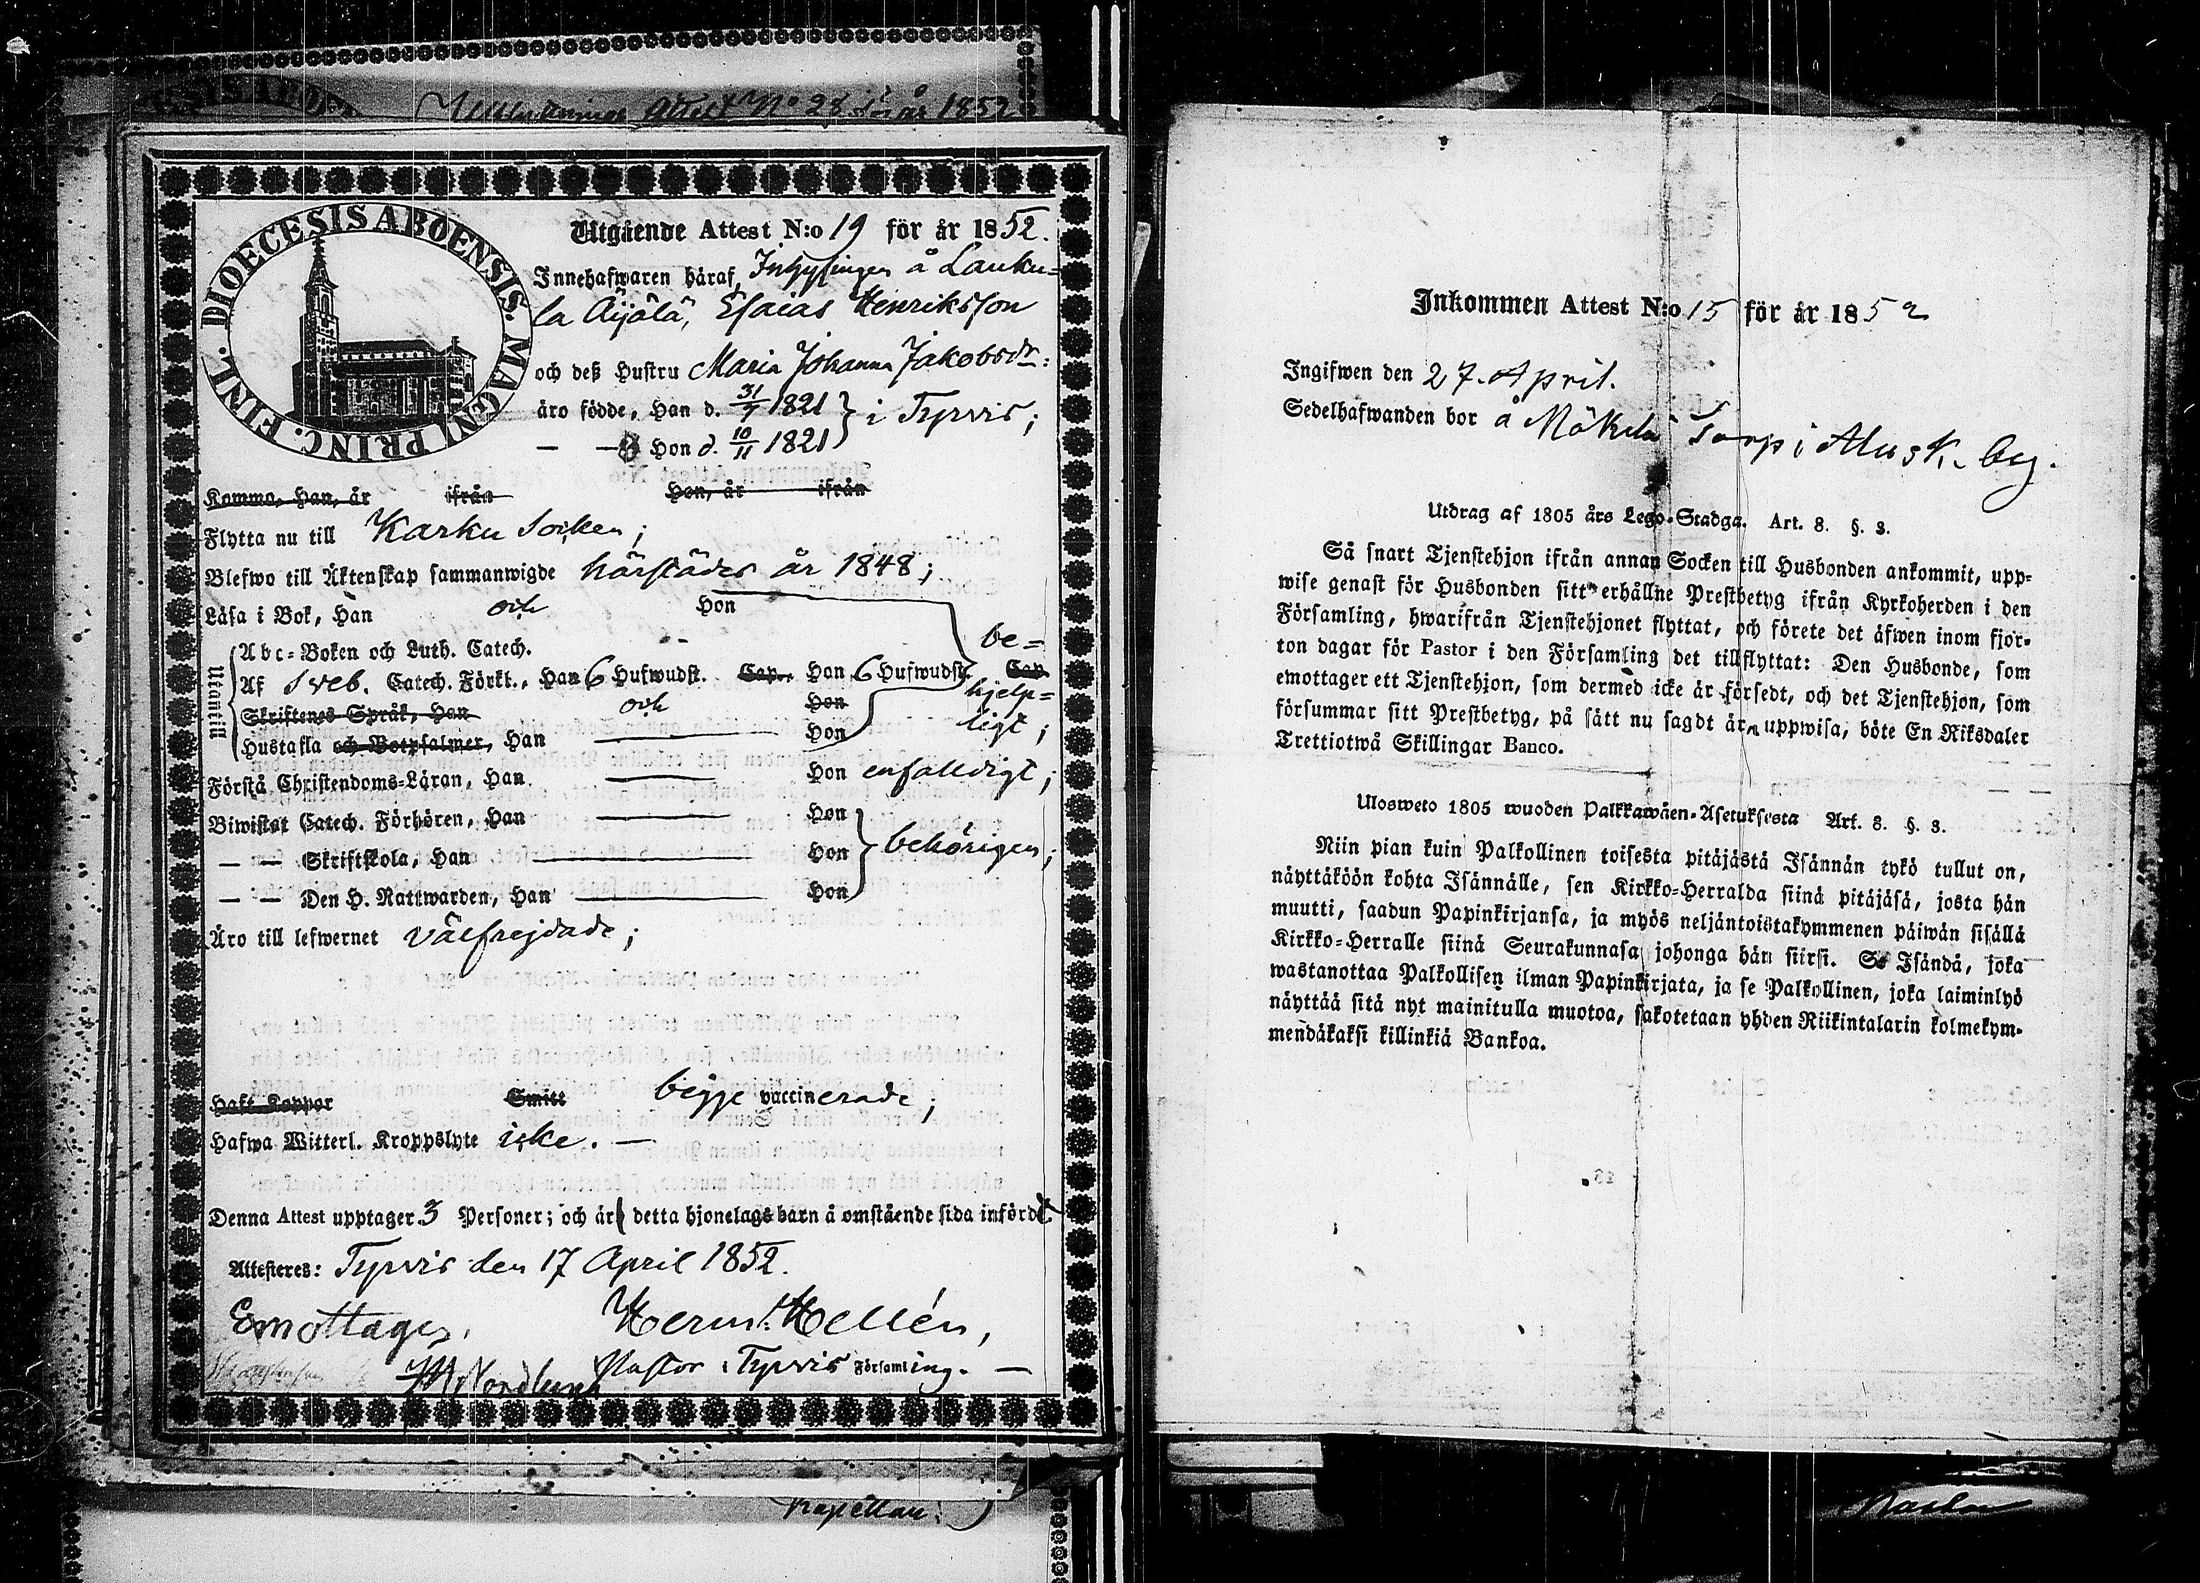 Attest No 28 för år 1852
DIOECESIS ABOENSIS. MAGN. PRINC. FINL.
Utgående Attest N:o 19 för år 1852.
Innehafwaren häraf, Inhysingen å Lauku=
la Äijälä, Esaias Henriksson
och deß Hustru Maria Johanna Jakobsdr:
äro födde, Han d. 31/7 1821 } i Tyrvis;
— — Hon d. 10/11 1821
Komma, Han, år ifrån Hon, år ifrån
Flytta nu till Karku Socken;
Blefwo till Äktenskap sammanwigde härstädes år 1848;
Läsa i Bok, Han och Hon
Utantill
Abc-Boken och Luth. Catech. be=
Af Sveb. Catech. Förkl., Han 6 Hufwudst. Cap., Han 6 Hufwudst. Cap
Skriftenes Språk, Han och Hon hjelp=
Hustafla och Botpsalmer, Han — Hon ligt;
Förstå Christendoms-Läran, Han — Hon enfaldigt;
Biwistat Catech. Förhören, Han — Hon
— — Skriftskola, Han — Hon } behörigen;
— — Den H. Nattwarden, Han — Hon
Äro till lefwernet välfrejdade;
Haft Koppor Smitt begge vaccinerade;
Hafwa Witterl. Kroppslyte icke. —
Denna Attest upptager 3 Personer; och är detta hjonelags barn å omstående sida infördt.
Attesteres: Tyrvis den 17 April 1852.
Emottages. Herm. Hellén,
Nordlund Pastor i Tyrvis Församling. —
Kapellan.
Inkommen Attest N:o 15 för år 1852
Ingifwen den 27. April.
Sedelhafwanden bor å Mäkelä Torp i Alusk. by.
Utdrag af 1805 års Lego-Stadga. Art. 8. §. 3.
Så snart Tjenstehjon ifrån annan Socken till Husbonden ankommit, upp=
wise genast för Husbonden sitt erhållne Prestbetyg ifrån Kyrkoherden i den
Församling, hwarifrån Tjenstehjonet flyttat, och förete det äfwen inom fjor=
ton dagar för Pastor i den Församling det tillflyttat: Den Husbonde, som
emottager ett Tjenstehjon, som dermed icke är försedt, och det Tjenstehjon, som
försummar sitt Prestbetyg, på sätt nu sagdt är, uppwisa, böte En Riksdaler
Trettiotwå Skillingar Banco.
Ulosweto 1805 wuoden Palkkawäen-Asetuksesta Art. 8. §. 3.
Niin pian kuin Palkollinen toisesta pitäjästä Isännän tykö tullut on,
näyttäköön kohta Isännälle, sen Kirkko-Herralda siinä pitäjäsä, josta hän
muutti, saadun Papinkirjansa, ja myös neljäntoistakymmenen päiwän sisällä
Kirkko-Herralle siinä Seurakunnasa johonga hän siirsi. Se Isändä, joka
wastanottaa Palkollisen ilman Papinkirjata, ja se Palkollinen, joka laiminlyö
näyttää sitä nyt mainitulla muotoa, sakotetaan yhden Riikintalarin kolmekym=
mendäkaksi killinkiä Bankoa.